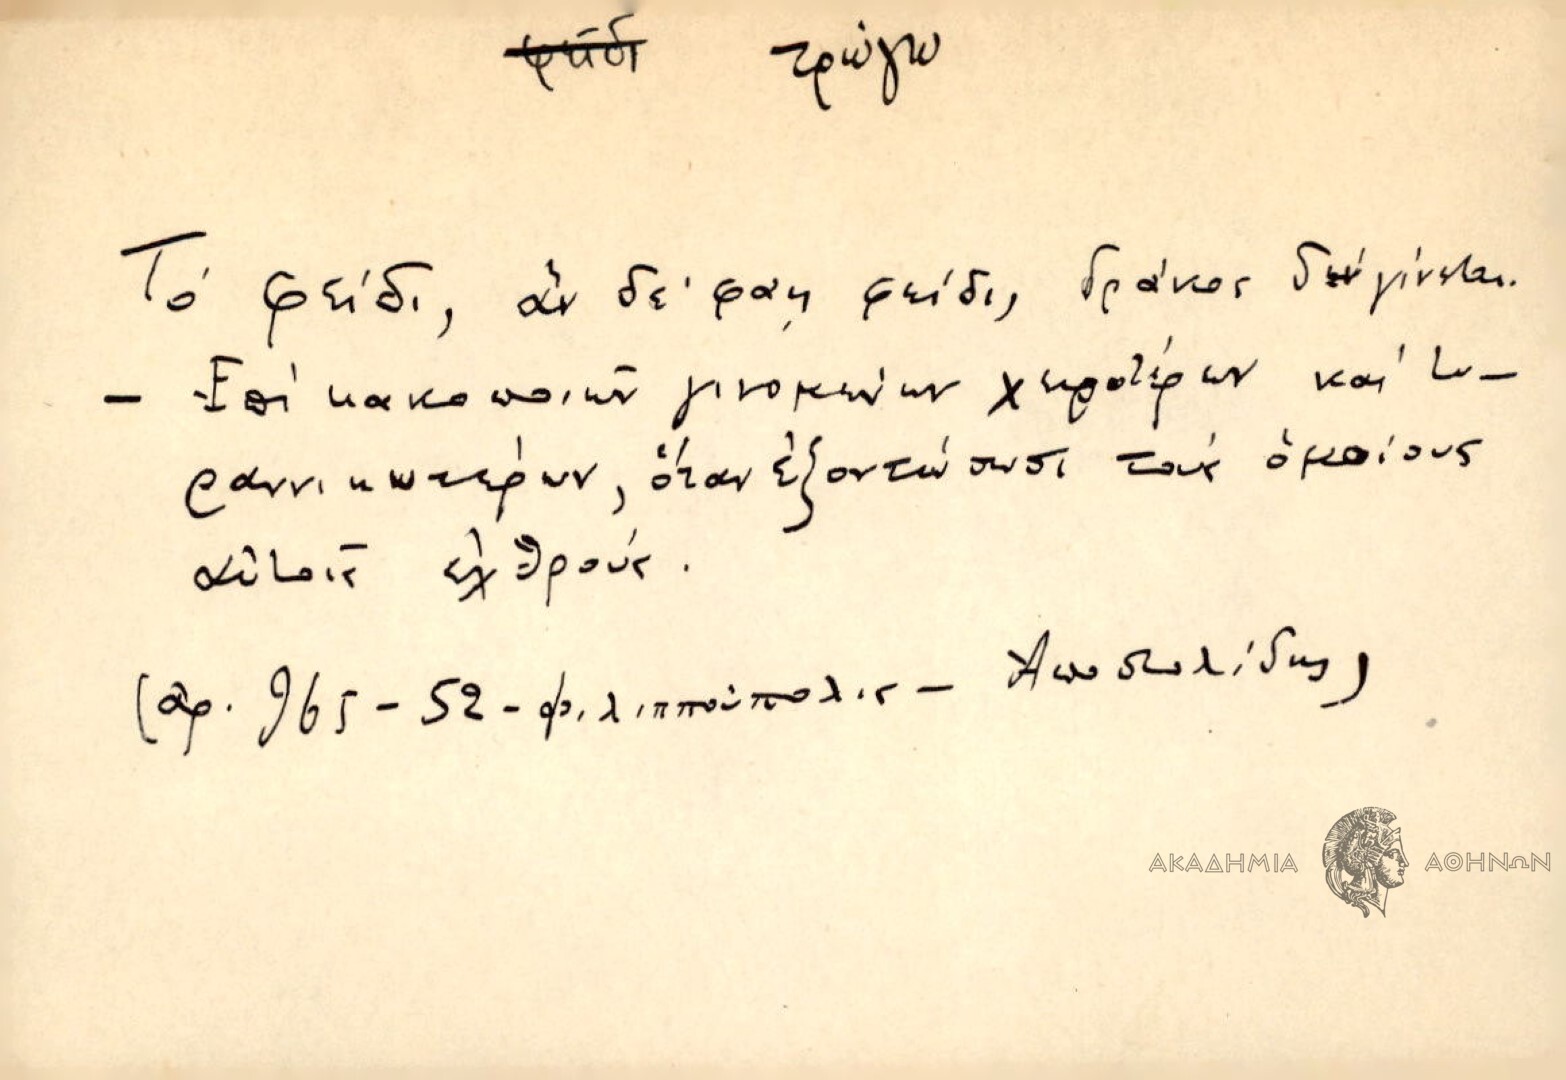 φεῖδι τρώγω
Τό φείδι, ἄν δέ φάῃ φείδι, δράκος δέν γίνεται.
- Ἐπί κακοποιῶν γινομένων χειροτέρων καί τυ-
ραννικωτέρων, ὅταν ἐξοντώσωσι τούς ὁμοίους
αὐτοῖς ἐχθρούς.
(ἀρ. 965 - 52 - Φιλιππούπολις - Ἀποστολίδης)
ΑΚΑΔΗΜΙΑ ΑΘΗΝΩΝ